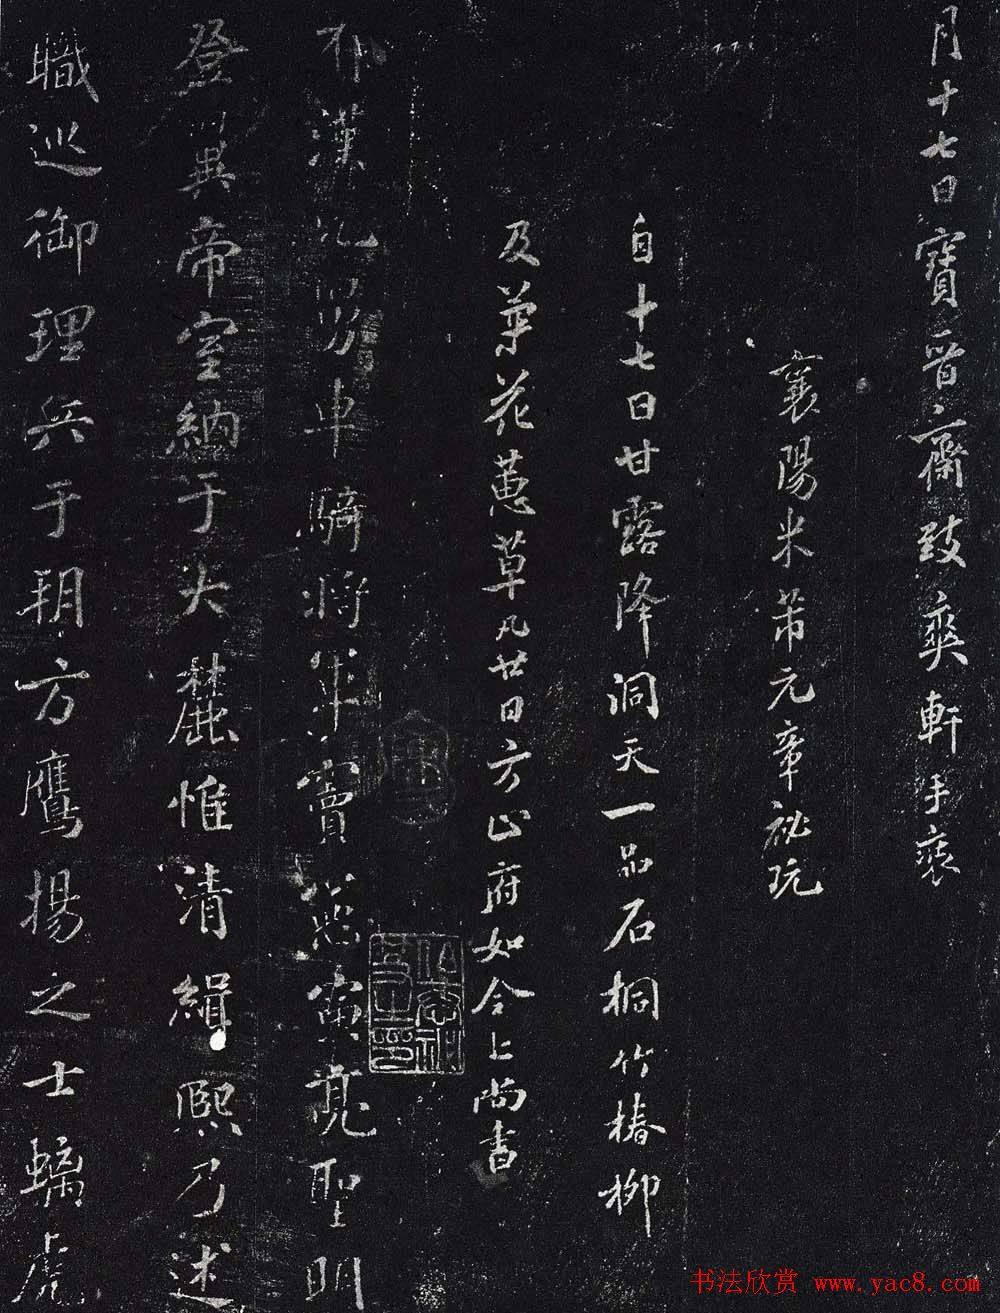 月十七日寶晉齋致爽軒手裝
襄陽米芾元章祕玩
自十七日甘露降洞天一品石桐竹椿柳
及蕉花蕙草凡廿日方止府如令上尚書
有漢元舅車騎將軍竇憲寅亮聖明
登異帝室納于大麓惟清緝熙乃述
職巡御理兵于朔方鷹揚之士螭虎
书法欣赏 www.yac8.com